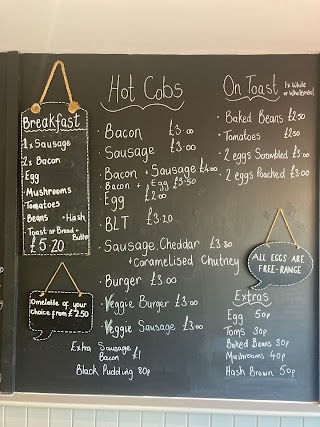 Breakfast
1 x Sausage
2 x Bacon
Egg
Mushrooms
Tomatoes
Beans + Hash
Toast or Bread + Butter
£5.20
Omelette of your
choice from £2.50
Hot Cobs
· Bacon £3.00
· Sausage £3.00
· Bacon + Sausage £4.00
· Bacon + Egg £3.50
· Egg £2.00
· BLT £3.20
· Sausage, Cheddar £3.80
+ Caramelised Chutney
· Burger £3.00
· Veggie Burger £3.00
· Veggie Sausage £3.00
Extra Sausage
Bacon £1
Black Pudding 80p
On Toast 1x White
or Wholemeal
· Baked Beans £2.50
· Tomatoes £2.50
· 2 eggs Scrambled £3.00
· 2 eggs Poached £3.00
ALL EGGS ARE
FREE-RANGE
Extras
Egg 50p
Toms 30p
Baked Beans 30p
Mushrooms 40p
Hash Brown 50p